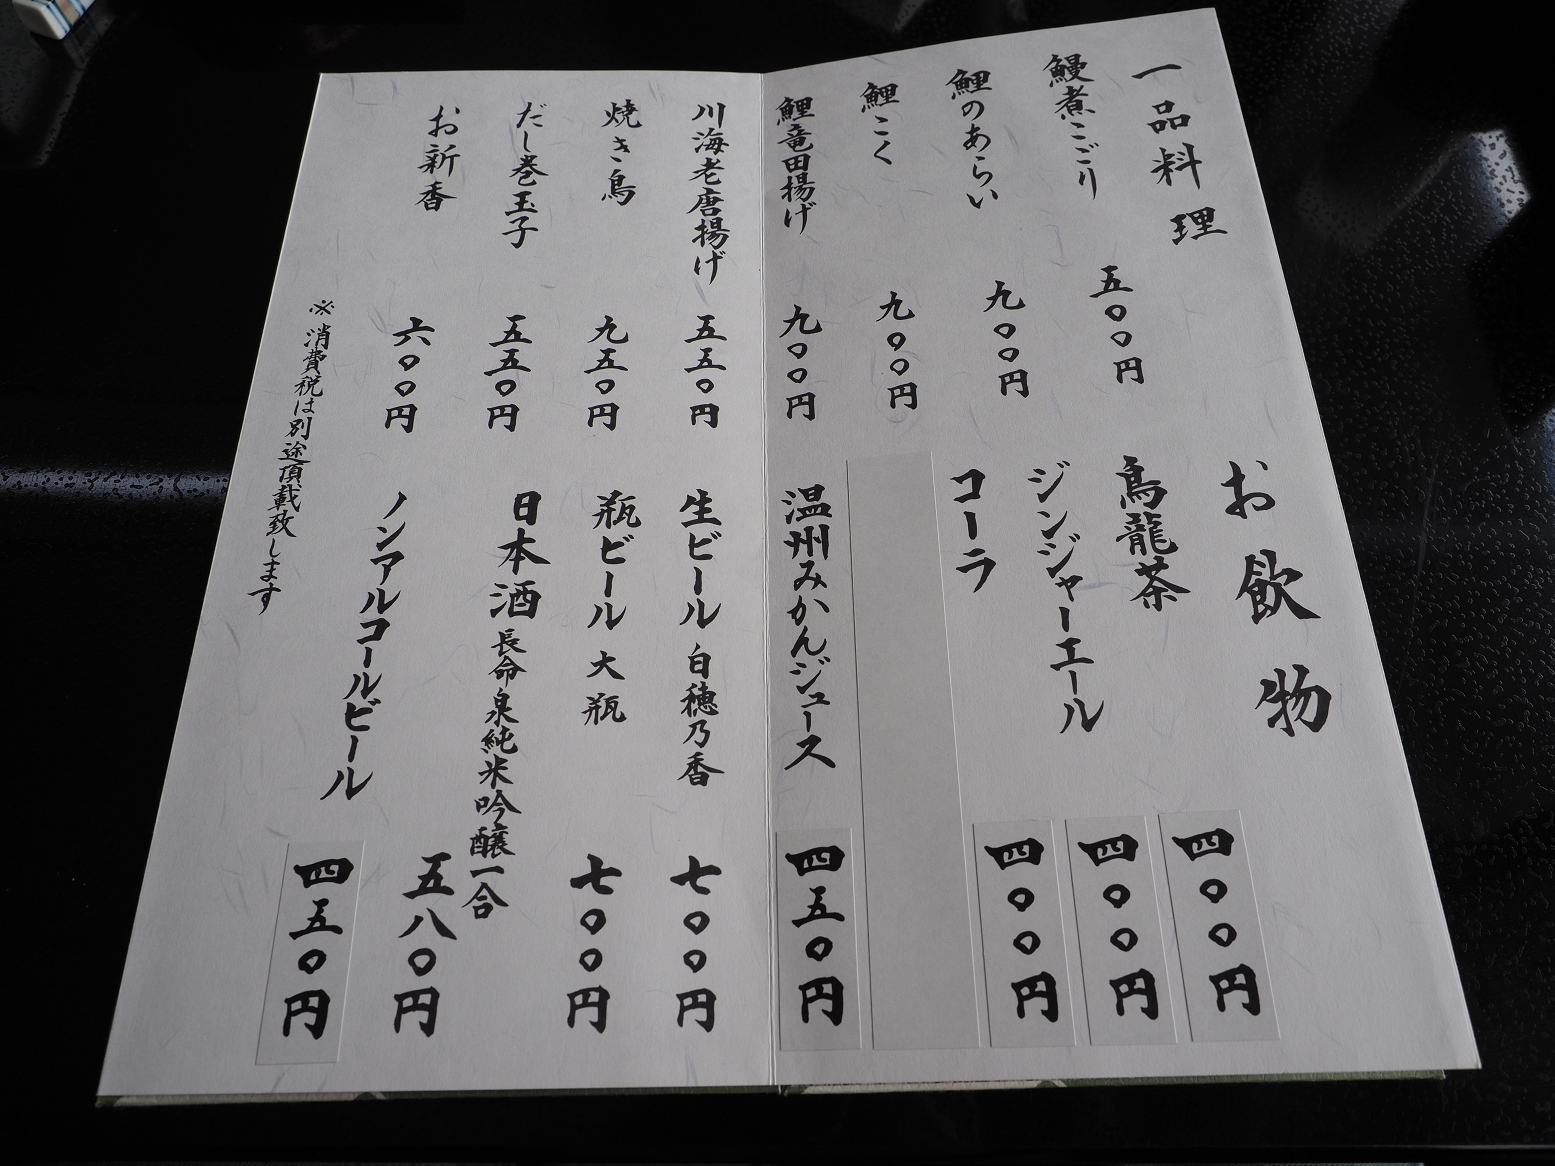 一品料理
鰻煮こごり 五〇〇円
鯉のあらい 九〇〇円
鯉こく 九〇〇円
鯉竜田揚げ 九〇〇円
川海老唐揚げ 五五〇円
焼き鳥 九五〇円
だし巻玉子 五五〇円
お新香 六〇〇円
※消費税は別途頂載致します
お飲物
烏龍茶 四〇〇円
ジンジャーエール 四〇〇円
コーラ 四〇〇円
温州みかんジュース 四五〇円
生ビール 白穂乃香 七〇〇円
瓶ビール 大瓶 七〇〇円
日本酒 長命泉純米吟醸一合 五八〇円
ノンアルコールビール 四五〇円